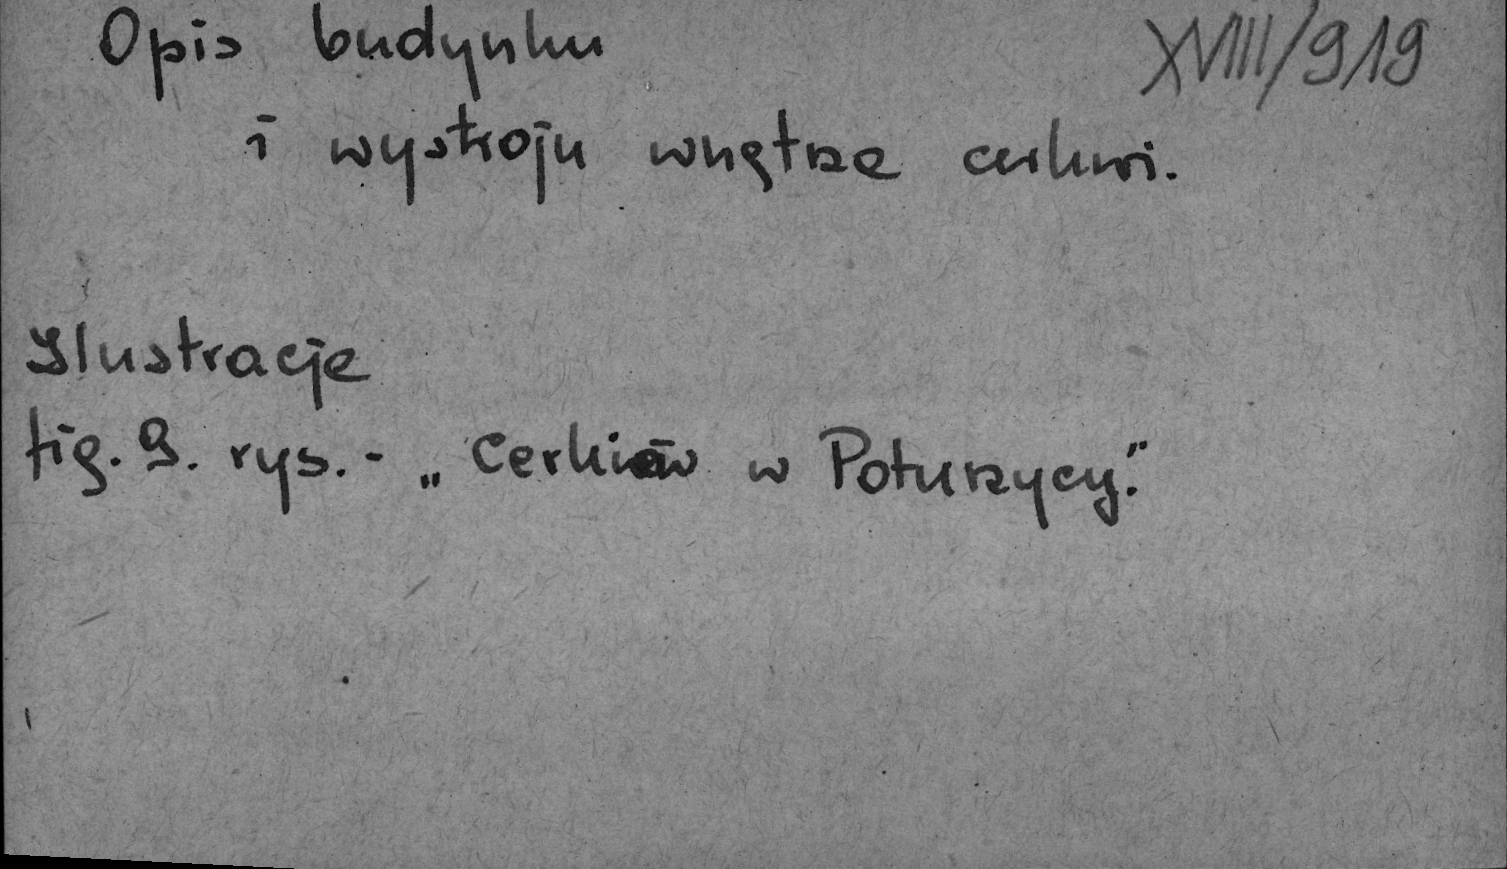 Opis budynku
XVIII/919
i wystroju wnętrza cerkwi.
Ilustracje
fig. 9. rys. - „Cerkiew w Poturzycy."